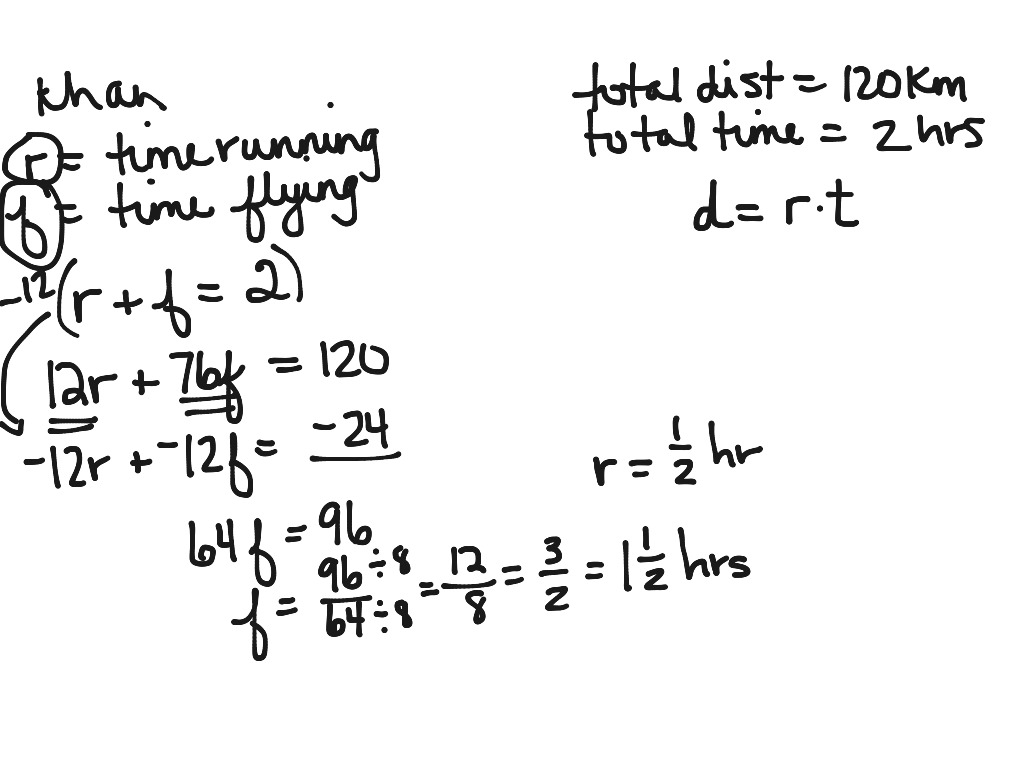 than
r = time running
f = time flying
total dist = 120 Km
total time = 2 hrs
d = r · t
-12 (r + f = 2)
12r + 76f = 120
-12r + -12f = -24
64f = 96
f = 96 ÷ 8 / 64 ÷ 8 = 12/8 = 3/2 = 1 1/2 hrs
r = 1/2 hr